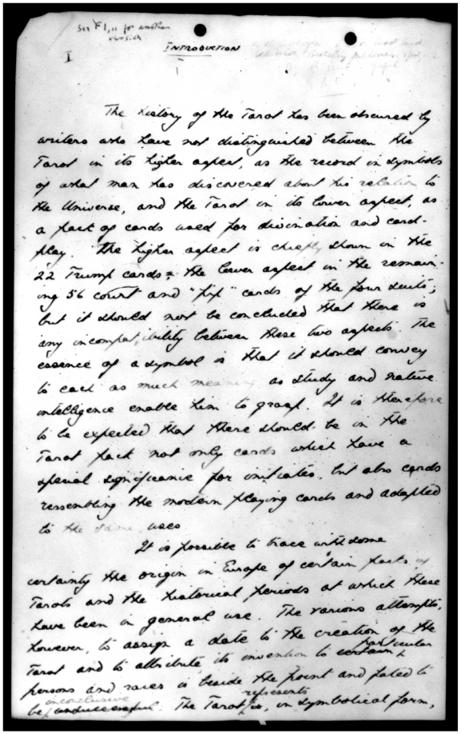 See F1,11 for another
version
I
INTRODUCTION
The history of the Tarot has been obscured by
writers who have not distinguished between the
Tarot in its higher aspect, as the record in symbols
of what man has discovered about his relation to
the Universe, and the Tarot in its lower aspect, as
a pack of cards used for divination and card-
play. The higher aspect is chiefly shown in the
22 Trump cards, the lower aspect in the remain-
ing 56 court and "pip" cards of the four suits;
but it should not be concluded that there is
any incompatibility between these two aspects. The
essence of a symbol is that it should convey
to each as much meaning as study and native
intelligence enable him to grasp. It is therefore
to be expected that there should be in the
Tarot pack not only cards which have a
special significance for initiates, but also cards
resembling the modern playing cards and adapted
to the same uses
It is possible to trace with some
certainty the origin in Europe of certain packs of
Tarots and the historical periods at which these
have been in general use. The various attempts,
however, to assign a date to the creation of the
particular
Tarot and to attribute its invention to certain
persons and races is beside the point and fated to
inconclusive represents
be unsuccessful. The Tarot is, in symbolical form,